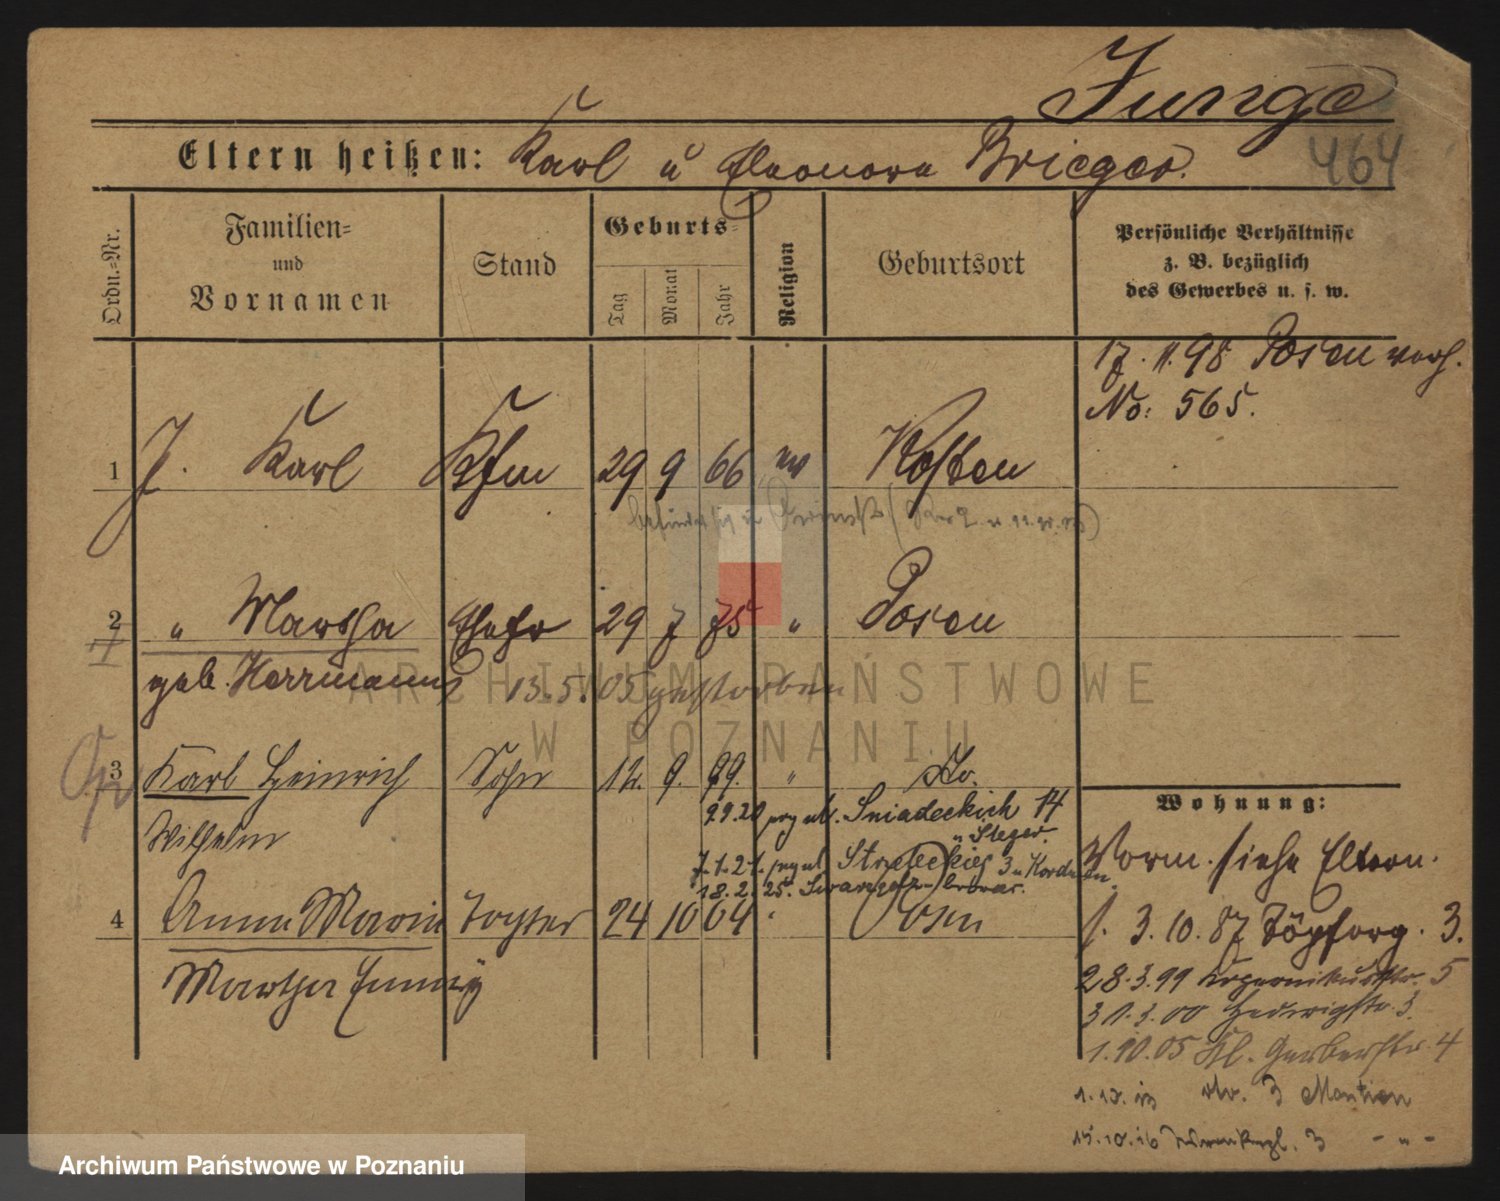 Junge
464
Eltern heißen: Karl u Eleonora Brieger.
Ordn.=Nr.
Familien=
und
Vornamen
Stand
Geburts=
Tag
Monat
Jahr
Religion
Geburtsort
Persönliche Verhältnisse
z. B. bezüglich
des Gewerbes u. s. w.
17. 11. 98 Posen verh.
No: 565.
1 J. Karl Kfm 29 9 66 ev Kosten
2 " Martha Ehefr 29 7 75 " Posen
geb. Herrmann 13.5.05 gestorben
3 Karl Heinrich Sohn 12. 9. 99. " do.
Wilhelm
9.9.20 Sniadeckich 14
u Steger.
7.1.21. Strzeleckiej 3 u
18.2.25.
4 Anna Maria Tochter 24 10 04 " Posen
Martha Emmy
Wohnung:
Vorm. siehe Eltern.
3.10.87 Töpferg. 3.
28.3.99 Kopernikusstr. 5
31.3.00 Hedwigstr. 3.
1.10.05 Kl. Gerberstr. 4
1.12. 3
15.10.16 3 - " -
ARCHIWUM PAŃSTWOWE
W POZNANIU
Archiwum Państwowe w Poznaniu